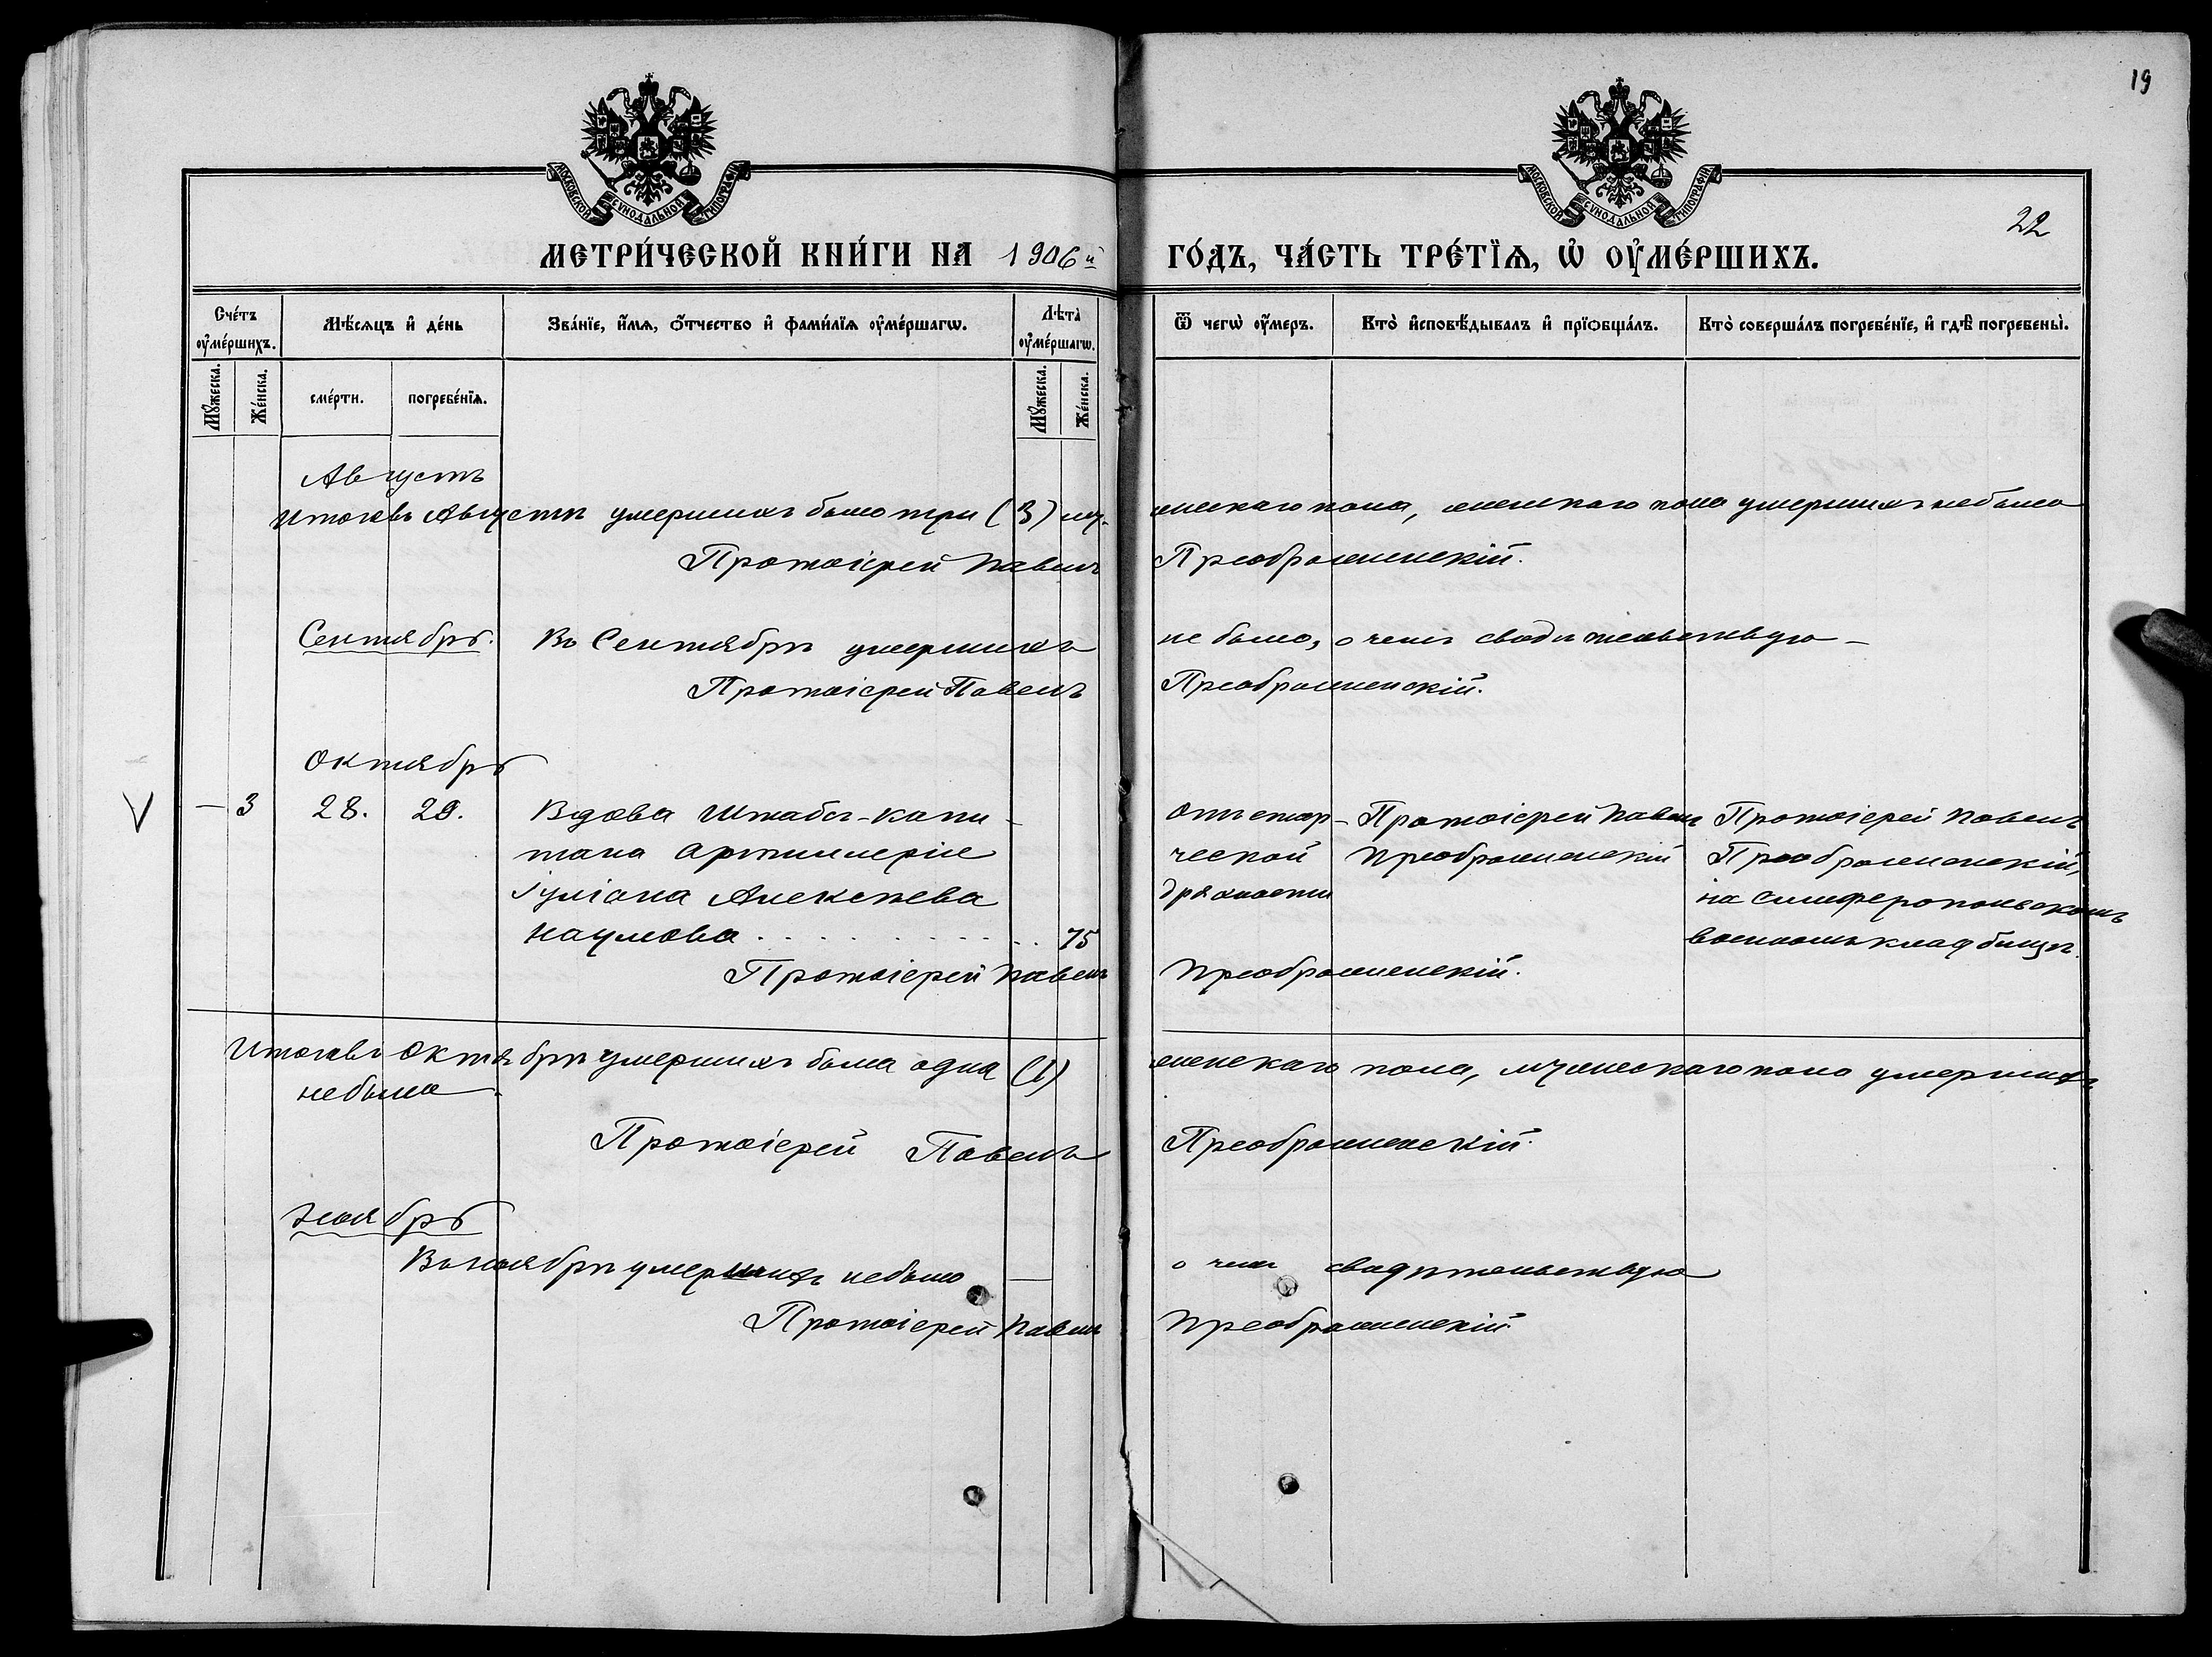 19
МОСКОВСКОЙ СѴНОДАЛЬНОЙ ТИПОГРАФІИ
МОСКОВСКОЙ СѴНОДАЛЬНОЙ ТИПОГРАФІИ
22
МЕТРИ́ЧЕСКОЙ КНИ́ГИ НА 1906й ГО́ДЪ, ЧА́СТЬ ТРЕ́ТЇѦ, Ѡ҆ ОУ҆МЕ́РШИХЪ.
Сче́тъ оу҆ме́ршихъ.
Мѣ́сѧцъ и҆ де́нь
Зва́нїе, и҆́мѧ, ѻ҆́тчество и҆ фами́лїѧ оу҆ме́ршагѡ.
Лѣ́та оу҆ме́ршагѡ.
Ѿ чегѡ̀ оу҆́меръ.
Кто̀ и҆сповѣ́дывалъ и҆ прїѻбща́лъ.
Кто̀ соверша́лъ погребе́нїе, и҆ гдѣ̀ погребены̀.
Мꙋ́жеска.
Же́нска.
сме́рти.
погребе́нїѧ.
Мꙋ́жеска.
Же́нска.
Августъ
Итого въ Августѣ умершихъ было три (3) мужескаго пола, женскаго пола умершихъ небыло
Протоіерей Павелъ Преображенскій.
Сентябрь. Въ Сентябрѣ умершихъ не было, о чемъ свидѣтельствую –
Протоіерей Павелъ Преображенскій.
Октябрь
V — 3 28. 29. Вдова Штабсъ-капи- Отъ стар- Протоіерей Павелъ Протоіерей Павелъ
тана Артиллеріи ческой Преображенскій Преображенскій,
Іуліана Алексѣева дряхлости на Симферопольскомъ
Наумова . . . . . . . . . . 75 военномъ кладбищѣ.
Протоіерей Павелъ Преображенскій.
Итого въ Октябрѣ умершихъ была одна (1) женскаго пола, мужескаго пола умершихъ
небыло.
Протоіерей Павелъ Преображенскій.
Ноябрь
Въ ноябрѣ умершихъ небыло — о чемъ свидѣтельствую
Протоіерей Павелъ Преображенскій